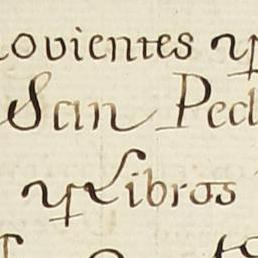 ovientes y
San Ped
y Libros